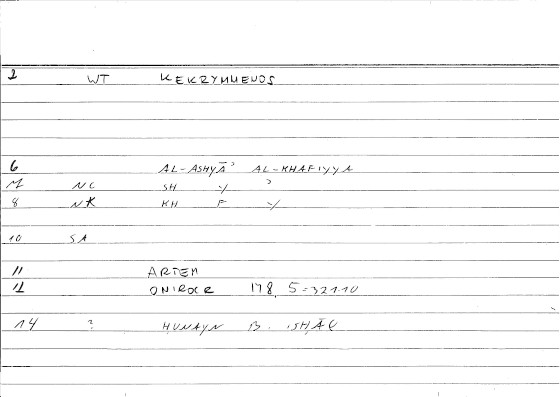 2 WT KEKRYMMENOS
6 AL-ASHYĀʾ AL-KHAFIYYA
M NC SH Y ʾ
8 NK KH F Y
10 SA
11 ARTEM
12 ONIROCR 178, 5-321.10
14 ? ḤUNAYN B. ISḤĀQ